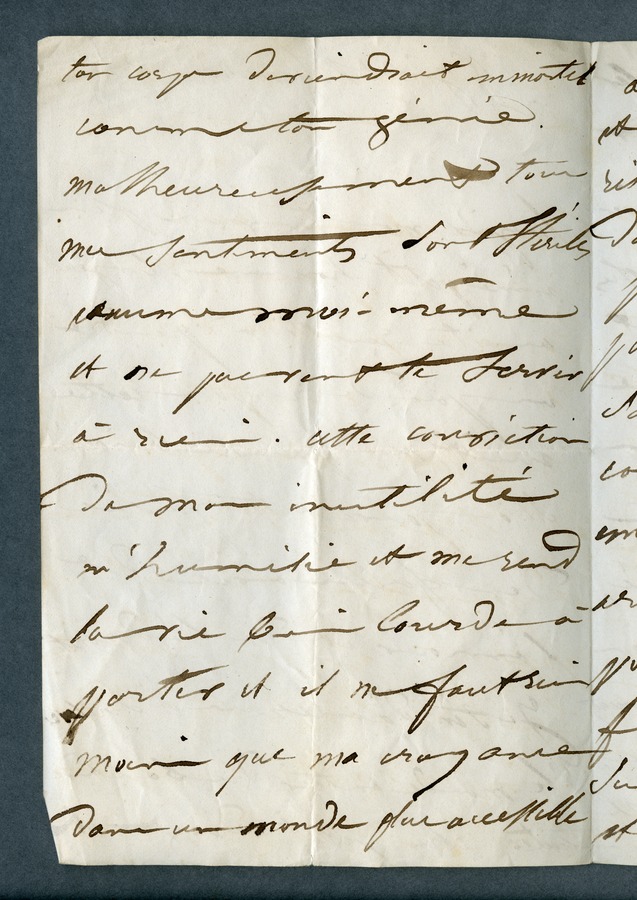 ton corps deviendrait immortel
comme ton génie.
malheureusement tous
mes sentiments sont stériles
comme moi-même
et ne peuvent te servir
à rien. cette conviction
de mon inutilité
m'humilie et me rend
la vie bien lourde à
porter et il ne faut rien
moins que ma croyance
dans un monde plus accessible